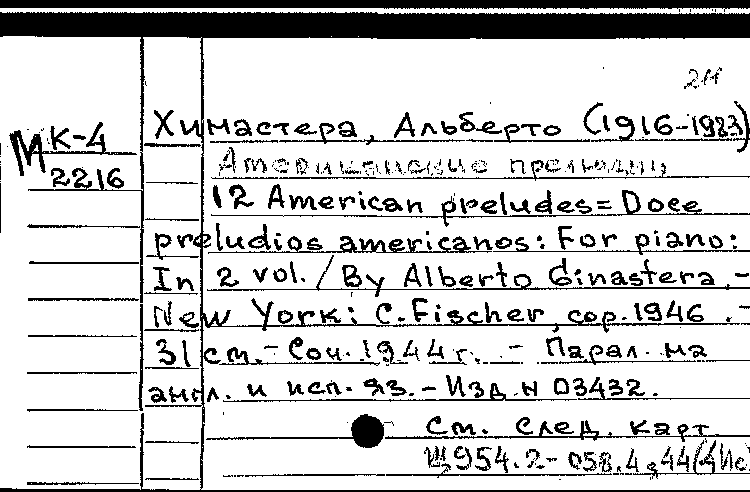 2Н
Химастера, Альберто (1916-1983)
М К-4
Американские прелюдии,
2216
12 American preludes = Doce
preludios americanos: For piano:
In 2 vol. / By Alberto Ginastera. -
New York: C. Fischer, cop. 1946. -
31 см. - Соч. 1944 г. - Парал. на
англ. и исп. яз. - Изд. N 03432.
См. след. карт.
Щ954.2-058.4,44(4Ис)